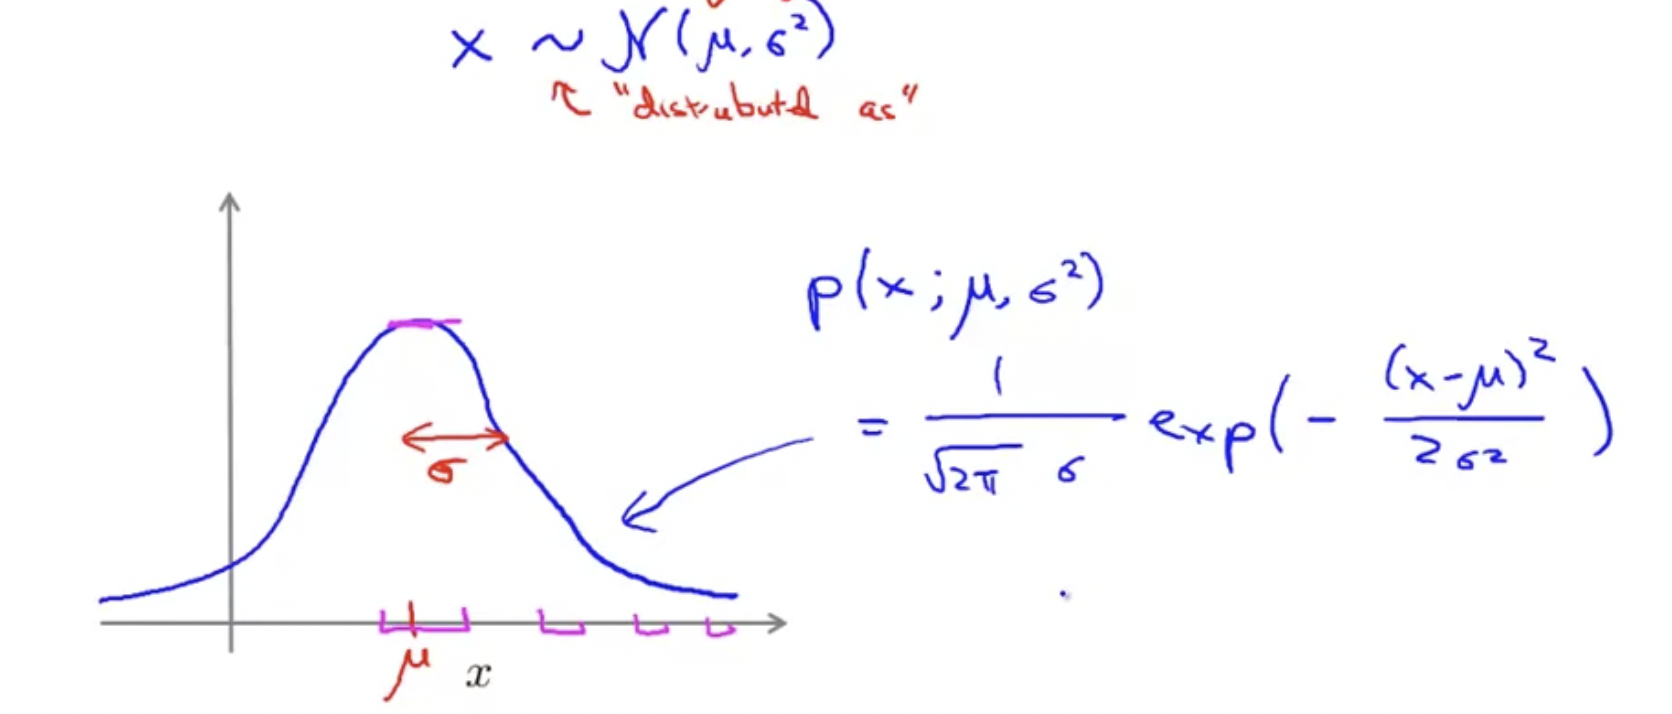 x ~ N(μ, σ²)
↖ "distributed as"
p(x; μ, σ²)
= 1 / (√2π σ) exp(- (x-μ)² / 2σ²)
σ
μ
x